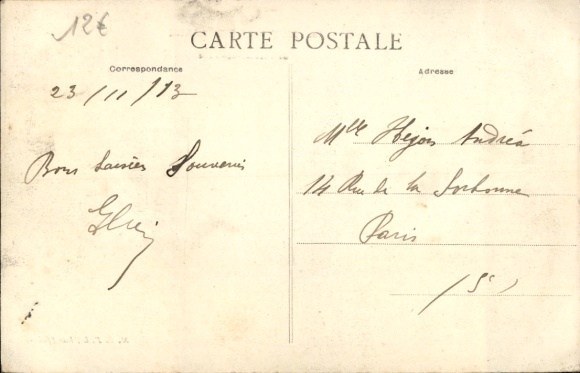 12€
CARTE POSTALE
Correspondance
Adresse
23/11/13
Bons Souvenirs
Mlle Hejon Andréa
14 Rue de la Sorbonne
Paris
(5e)